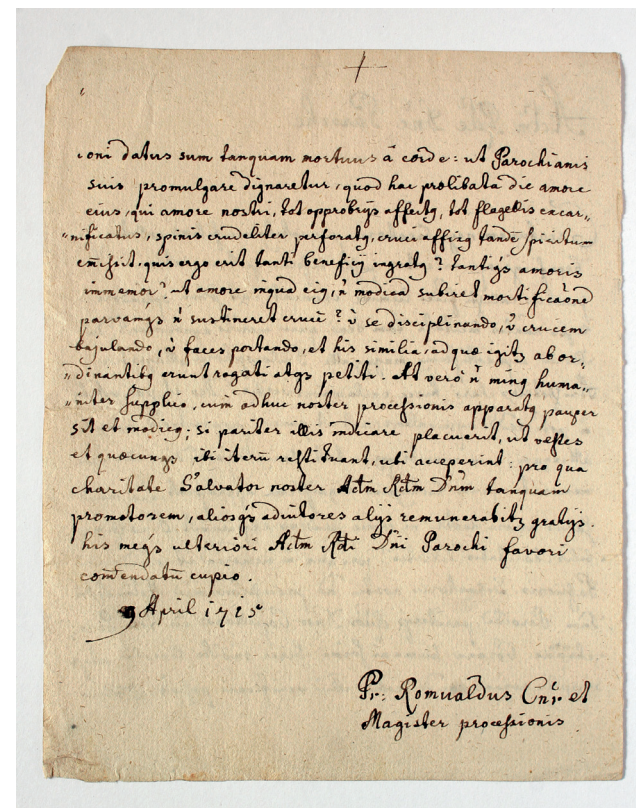 oni datus sum tanquam mortuus â corde: ut Parochianis
suis promulgare dignaretur, quod hac prolibata die amore
eius, qui amore nostri, tot opprobrys affectq, tot flagellis excar„
„nificatus, spinis crudeliter perforatq, cruci affixq tandē spiritum
emissit, quis ergo erit tanti beneficy ingratq? tantiqs amoris
immemor? ut amore inquā eiq, n̄ modicā subiret mortificaōnē
parvamqs n̄ sustineret crucē? v̀ se disciplinando, v̀ crucem
bajulando, v̀ faces portando, et his similia, ad quæ igitq ab or„
„dinantibq erunt rogati atqs petiti. At verò n̄ minq huma„
„niter supplico, cum adhuc noster processionis apparatq pauper
sit et modicq; si pariter illis indicare placuerit, ut vestes
et quæcunqs ibi iterū restituant, ubi acceperint: pro qua
charitate Salvator noster Adm Rdm Dnm tanquam
promotorem, aliosqs adiutores alys remunerabitq gratys.
his meqs ulteriori Adm Rdi Dni Parochi favori
com̄endatū cupio.
9 April 1715
Fr: Romualdus Cnr et
Magister processionis